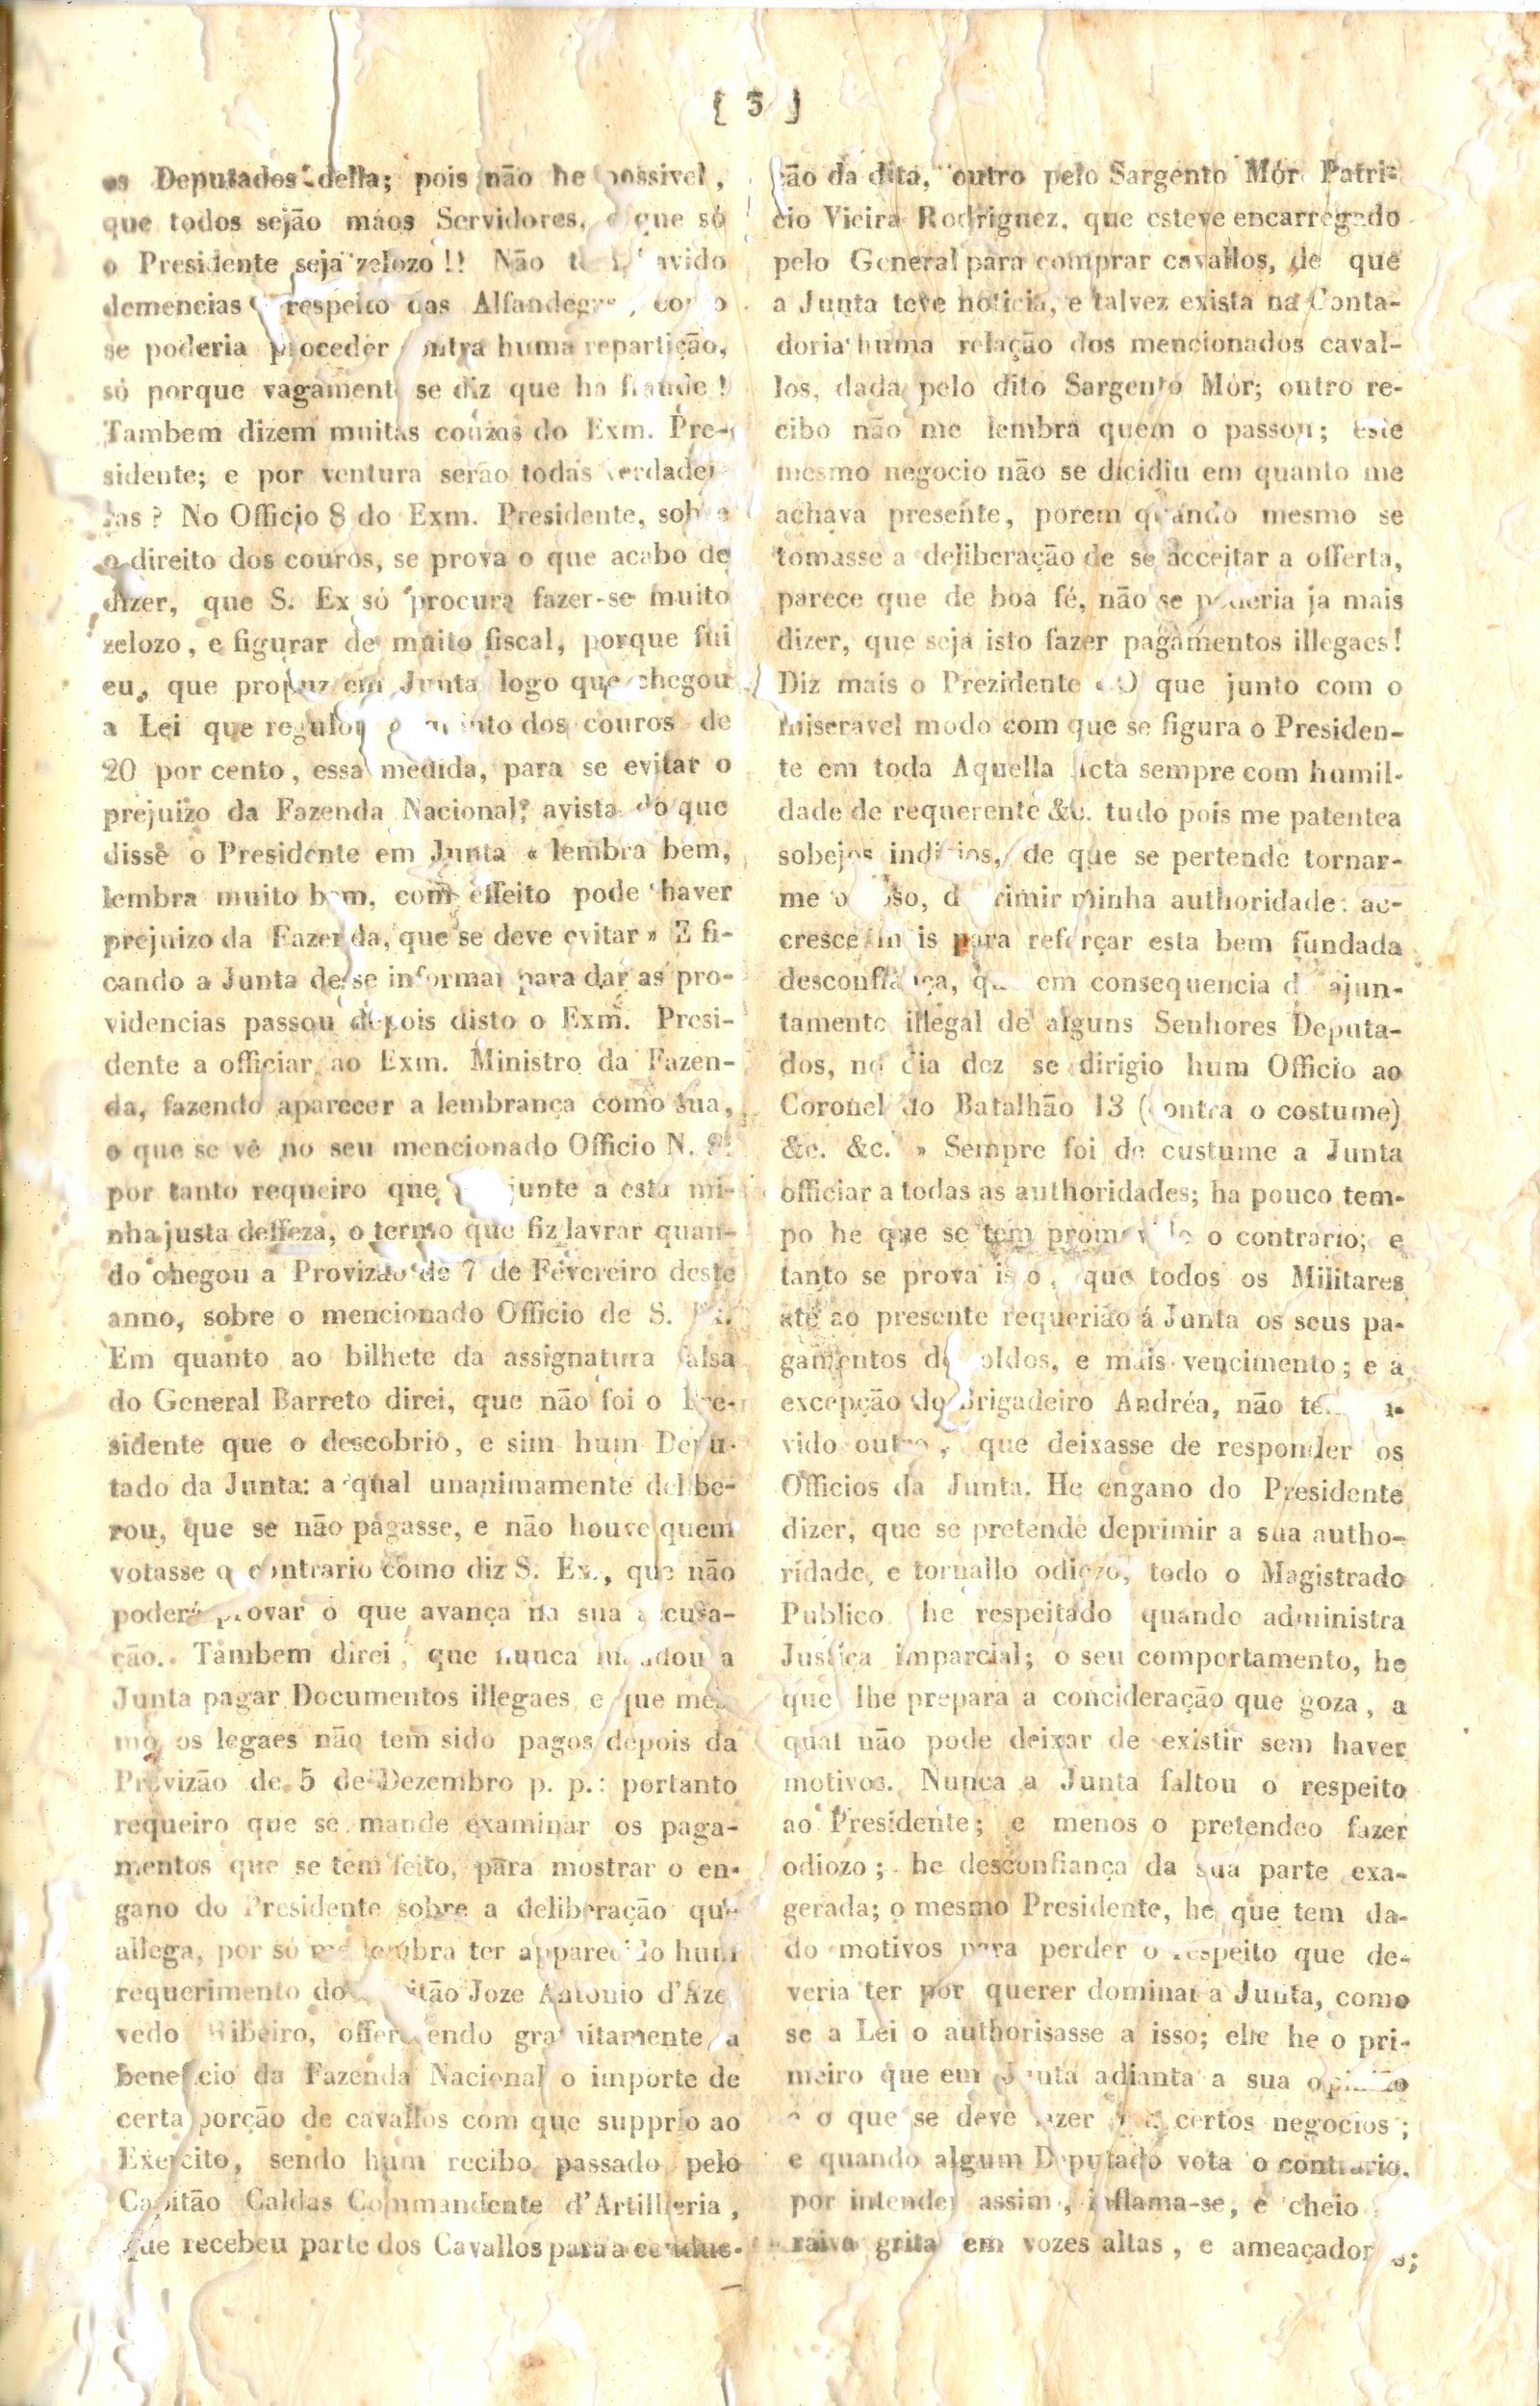 [ 3 ]
os Deputados della; pois não he possivel,
que todos sejão máos Servidores, e que só
o Presidente seja zelozo!! Não avido
demencias respeito das Alfandegas, como
se poderia proceder contra huma repartição,
só porque vagamente se diz que ha fraude!
Tambem dizem muitas couzas do Exm. Pre-
sidente; e por ventura serão todas verdadei-
ras? No Officio 8 do Exm. Presidente, sobre
o direito dos couros, se prova o que acabo de
dizer, que S. Ex só procura fazer-se muito
zelozo, e figurar de muito fiscal, porque fui
eu, que propuz em Junta logo que chegou
a Lei que regulou dos couros de
20 por cento, essa medida, para se evitar o
prejuizo da Fazenda Nacional, avista do que
disse o Presidente em Junta « lembra bem,
lembra muito bem, com effeito pode haver
prejuizo da Fazenda, que se deve evitar » E fi-
cando a Junta de se informar para dar as pro-
videncias passou depois disto o Exm. Presi-
dente a officiar ao Exm. Ministro da Fazen-
da, fazendo aparecer a lembrança como sua,
o que se vê no seu mencionado Officio N. 8:
por tanto requeiro que junte a esta mi-
nha justa deffeza, o termo que fiz lavrar quan-
do chegou a Provizão de 7 de Fevereiro deste
anno, sobre o mencionado Officio de S. Ex.
Em quanto ao bilhete da assignatura falsa
do General Barreto direi, que não foi o Pre-
sidente que o descobrio, e sim hum Depu-
tado da Junta: a qual unanimamente delibe-
rou, que se não págasse, e não houve quem
votasse o contrario como diz S. Ex., que não
poderá provar o que avança na sua accusa-
ção. Tambem direi, que nunca mandou a
Junta pagar Documentos illegaes e que mes-
mo os legaes não tem sido pagos depois da
Provizão de 5 de Dezembro p. p.: portanto
requeiro que se mande examinar os paga-
mentos que se tem feito, para mostrar o en-
gano do Presidente sobre a deliberação que
allega, por só me lembra ter apparecido hum
requerimento do Capitão Joze Antonio d'Aze
vedo Ribeiro, offerecendo gratuitamente a
beneficio da Fazenda Nacional o importe de
certa porção de cavallos com que supprio ao
Exercito, sendo hum recibo passado pelo
Capitão Caldas Commandente d'Artilheria,
que recebeu parte dos Cavallos para a conduc-
ção da dita, outro pelo Sargento Mór Patri-
cio Vieira Rodriguez, que esteve encarregado
pelo General para comprar cavallos, de que
a Junta teve noticia, e talvez exista na Conta-
doria huma relação dos mencionados caval-
los, dada pelo dito Sargento Mór; outro re-
cibo não me lembra quem o passou; este
mesmo negocio não se dicidiu em quanto me
achava presente, porem quando mesmo se
tomasse a deliberação de se acceitar a offerta,
parece que de boa fé, não se poderia ja mais
dizer, que seja isto fazer pagamentos illegaes!
Diz mais o Prezidente « O que junto com o
miseravel modo com que se figura o Presiden-
te em toda Aquella Acta sempre com humil-
dade de requerente &c. tudo pois me patentea
sobejos indicios, de que se pertende tornar-
me minha authoridade: ac-
cresce mais para reforçar esta bem fundada
desconfiança, que em consequencia do ajun-
tamento illegal de alguns Senhores Deputa-
dos, no dia dez se dirigio hum Officio ao
Coronel do Batalhão 13 (contra o costume)
&c. &c. » Sempre foi de custume a Junta
officiar a todas as authoridades; ha pouco tem-
po he que se tem promovido o contrario; e
tanto se prova isto, que todos os Militares
até ao presente requerião á Junta os seus pa-
gamentos de soldos, e mais vencimento; e a
excepção do Brigadeiro Andréa, não tem ha-
vido outro, que deixasse de responder os
Officios da Junta. He engano do Presidente
dizer, que se pretende deprimir a sua autho-
ridade, e tornallo odiozo, todo o Magistrado
Publico he respeitado quando administra
Justiça imparcial; o seu comportamento, he
que lhe prepara a concideração que goza, a
qual não pode deixar de existir sem haver
motivos. Nunca a Junta faltou o respeito
ao Presidente; e menos o pretendeo fazer
odiozo; he desconfiança da sua parte exa-
gerada; o mesmo Presidente, he que tem da-
do motivos para perder o respeito que de-
veria ter por querer dominar a Junta, como
se a Lei o authorisasse a isso; elle he o pri-
meiro que em Junta adianta a sua opinião
o que se deve fazer certos negocios;
e quando algum Deputado vota o contrario,
por intender assim, inflama-se, e cheio
raiva grita em vozes altas, e ameaçadoras;